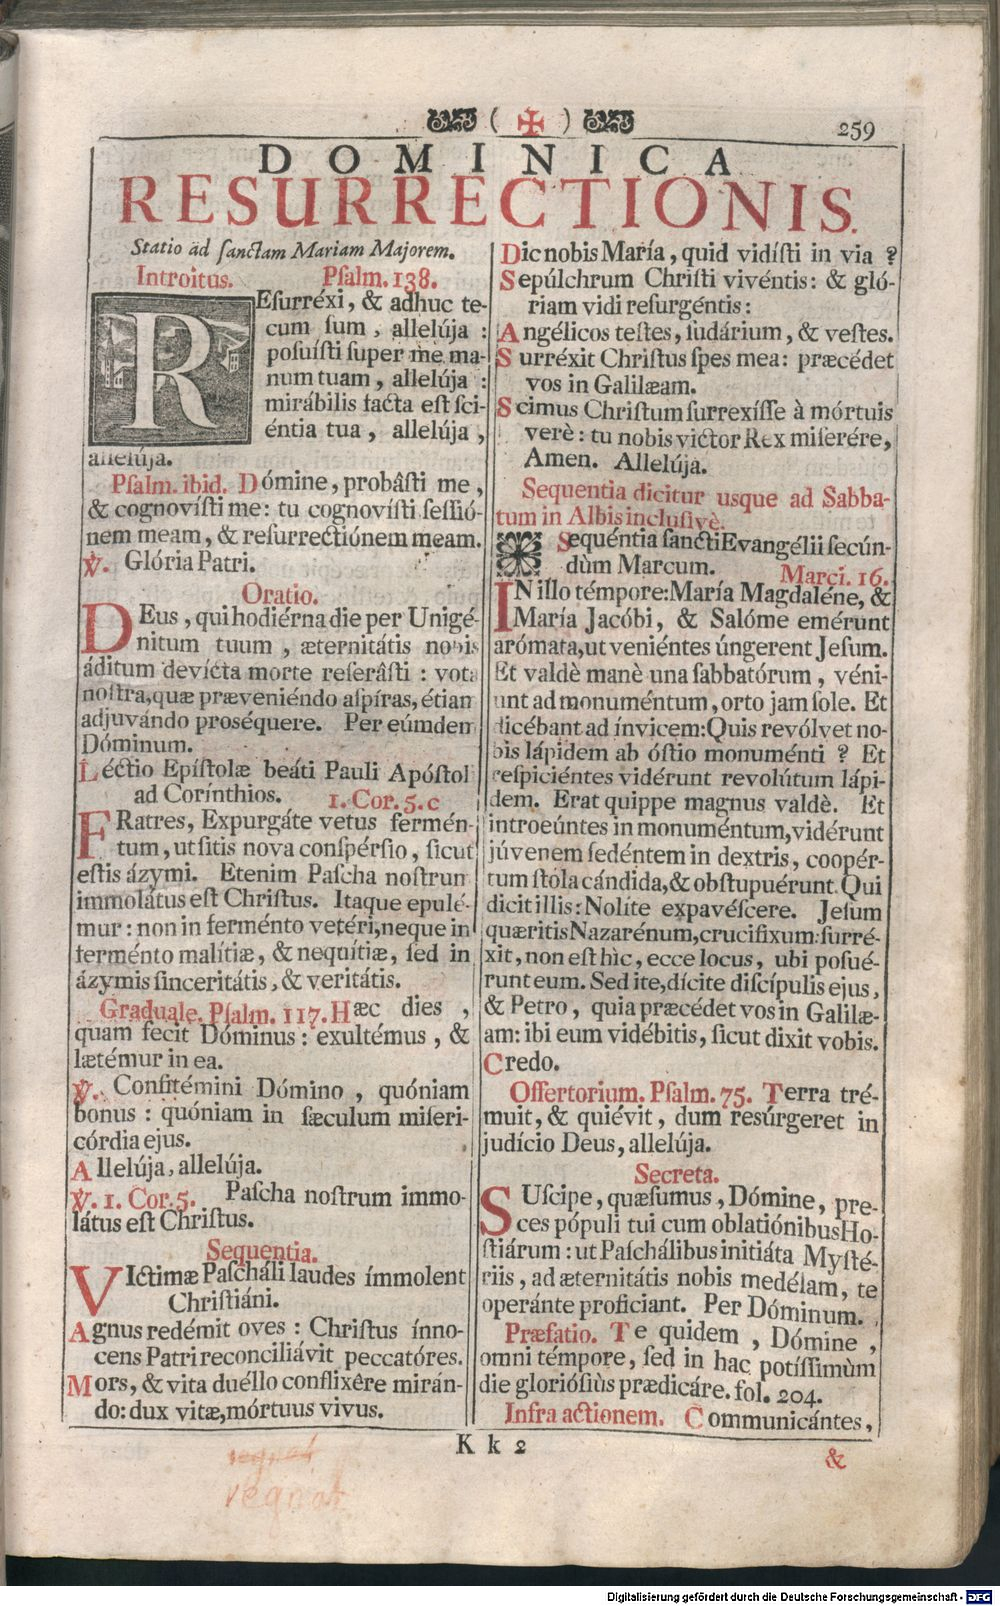 ( ✠ ) 259
DOMINICA
RESURRECTIONIS.
Statio ad ſanctam Mariam Majorem.
Introitus. Pſalm. 138.
REſurréxi, & adhuc te-
cum ſum, allelúja :
poſuíſti ſuper me ma-
num tuam, allelúja :
mirábilis facta eſt ſci-
éntia tua, allelúja,
allelúja.
Pſalm. ibid. Dómine, probâſti me,
& cognovíſti me: tu cognovíſti ſeſſió-
nem meam, & reſurrectiónem meam.
℣. Glória Patri.
Oratio.
DEus, qui hodiérna die per Unigé-
nitum tuum, æternitátis nobis
áditum devícta morte reſerâſti : vota
noſtra, quæ præveniéndo aſpíras, étiam
adjuvándo proséquere. Per eúmdem
Dóminum.
Léctio Epíſtolæ beáti Pauli Apóſtol
ad Corínthios. 1. Cor. 5. c
FRatres, Expurgáte vetus fermén-
tum, ut ſitis nova conſpérſio, ſicut
eſtis ázymi. Etenim Paſcha noſtrum
immolátus eſt Chriſtus. Itaque epulé-
mur : non in ferménto vetéri, neque in
ferménto malítiæ, & nequítiæ, ſed in
ázymis ſinceritátis, & veritátis.
Graduale. Pſalm. 117. Hæc dies,
quam fecit Dóminus : exultémus, &
lætémur in ea.
℣. Confitémini Dómino, quóniam
bonus : quóniam in ſæculum miſeri-
córdia ejus.
Allelúja, allelúja.
℣. 1. Cor. 5. Paſcha noſtrum immo-
látus eſt Chriſtus.
Sequentia.
VIctimæ Paſcháli laudes ímmolent
Chriſtiáni.
Agnus redémit oves : Chriſtus ínno-
cens Patri reconciliávit peccatóres.
Mors, & vita duéllo conflixêre mirán-
do: dux vitæ, mórtuus vivus.
Dic nobis María, quid vidíſti in via ?
Sepúlchrum Chriſti vivéntis: & gló-
riam vidi reſurgéntis :
Angélicos teſtes, ſudárium, & veſtes.
Surréxit Chriſtus ſpes mea: præcédet
vos in Galilæam.
Scimus Chriſtum ſurrexíſſe à mórtuis
verè : tu nobis victor Rex miſerére,
Amen. Allelúja.
Sequentia dicitur usque ad Sabba-
tum in Albis incluſivè.
Sequéntia ſancti Evangélii ſecún-
dùm Marcum. Marci. 16.
IN illo témpore: María Magdaléne, &
María Jacóbi, & Salóme emérunt
arómata, ut veniéntes úngerent Jeſum.
Et valdè manè una ſabbatórum, véni-
unt ad monuméntum, orto jam ſole. Et
dicébant ad ínvicem: Quis revólvet no-
bis lápidem ab óſtio monuménti ? Et
reſpiciéntes vidérunt revolútum lápi-
dem. Erat quippe magnus valdè. Et
introeúntes in monuméntum, vidérunt
júvenem ſedéntem in dextris, coopér-
tum ſtola cándida, & obſtupuérunt. Qui
dicit illis: Nolíte expavéſcere. Jeſum
quæritis Nazarénum, crucifixum: ſurré-
xit, non eſt hic, ecce locus, ubi poſué-
runt eum. Sed ite, dícite diſcípulis ejus,
& Petro, quia præcédet vos in Galilæ-
am: ibi eum vidébitis, ſicut dixit vobis.
Credo.
Offertorium. Pſalm. 75. Terra tré-
muit, & quiévit, dum resúrgeret in
judício Deus, allelúja.
Secreta.
SUſcipe, quæſumus, Dómine, pre-
ces pópuli tui cum oblatiónibus Ho-
ſtiárum : ut Paſchálibus initiáta Myſté-
riis, ad æternitátis nobis medélam, te
operánte proficiant. Per Dóminum.
Præfatio. Te quidem, Dómine,
omni témpore, ſed in hac potíſſimùm
die gloriósiùs prædicáre. fol. 204.
Infra actionem. Communicántes,
K k 2
&
regnat
regnat
Digitalisierung gefördert durch die Deutsche Forschungsgemeinschaft - DFG